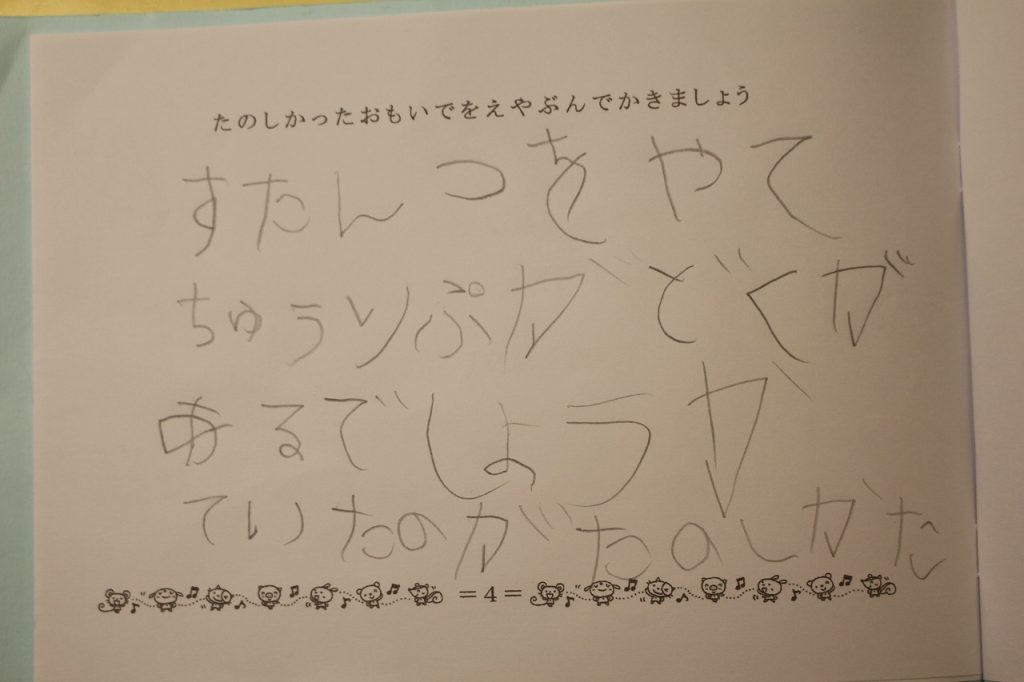 たのしかったおもいでをえやぶんでかきましょう
すたんつをやて
ちゅうりぷがどくが
あるでしょうが
ていたのがたのしがた
=4=